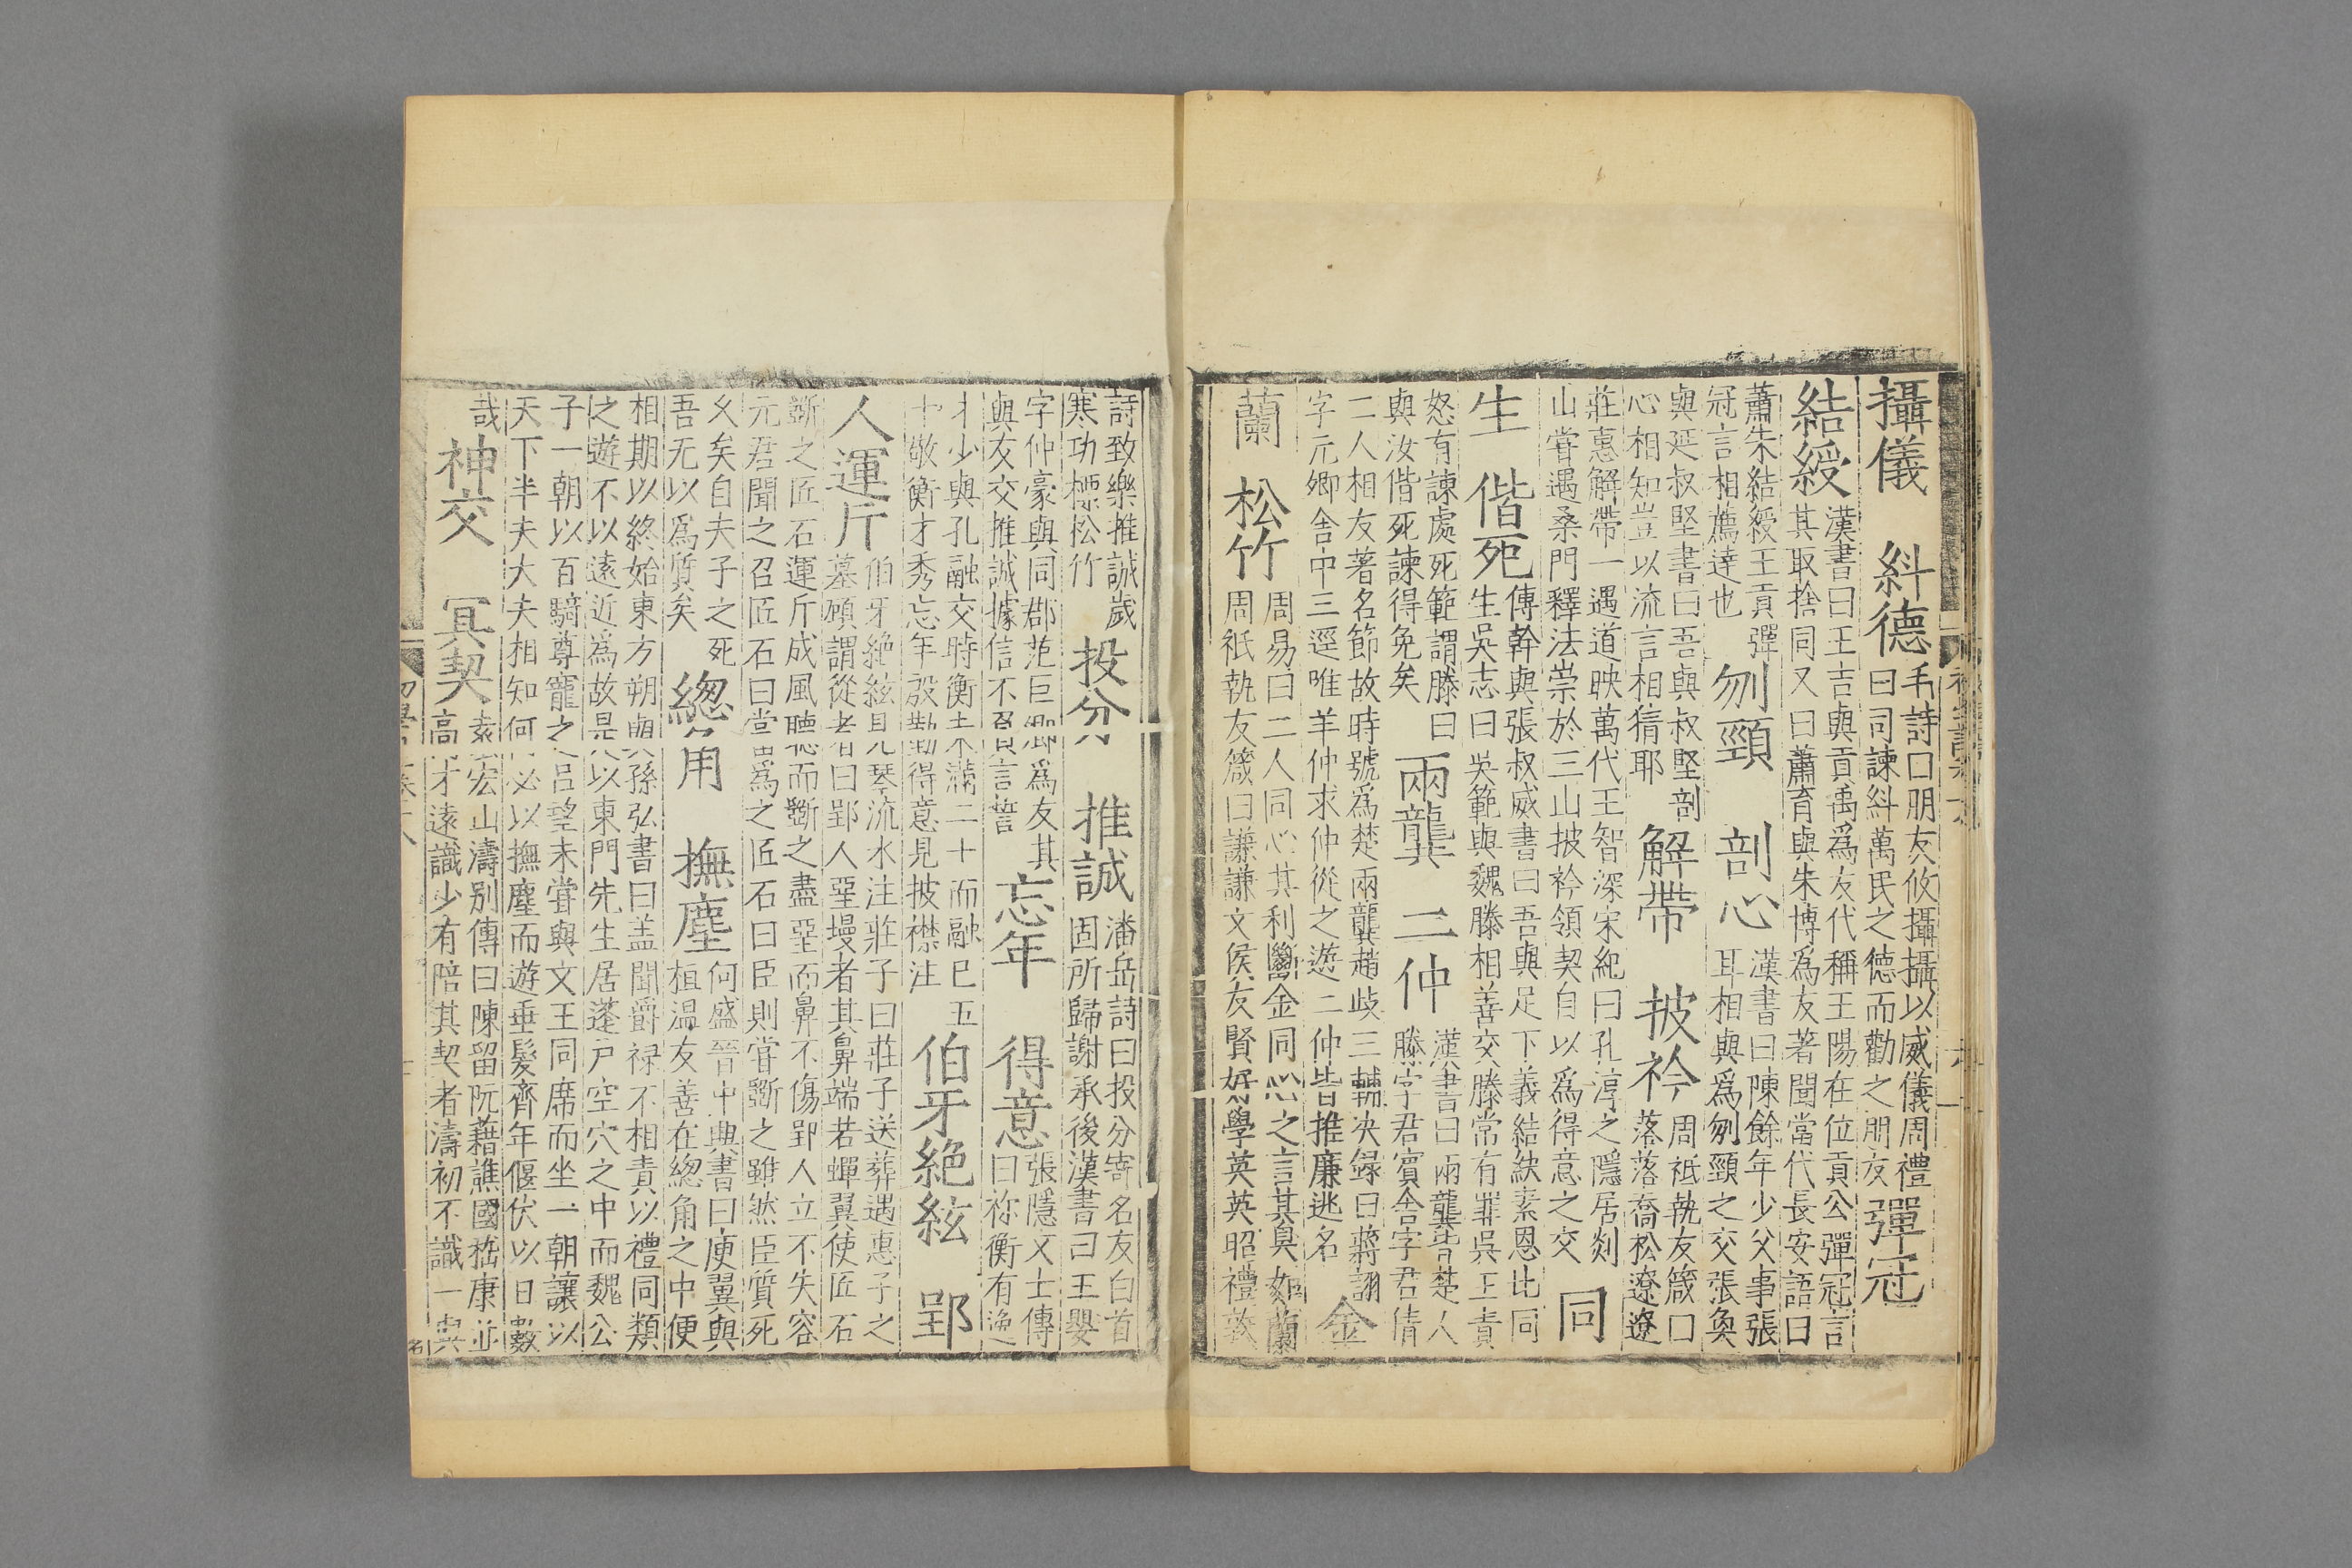 攝儀　糾德　毛詩曰朋友攸攝攝以威儀周禮
曰司諫糾萬民之德而勸之朋友　彈冠
結綬　漢書曰王吉與貢禹爲友代稱王陽在位貢公彈冠言
其取捨同又曰蕭育與朱博爲友著聞當代長安語曰
蕭朱結綬王貢彈
冠言相薦達也　刎頸　剖心　漢書曰陳餘年少父事張
耳相與爲刎頸之交張奐
與延叔堅書曰吾與叔堅剖
心相知豈以流言相猜耶　解帶　披衿　周祗執友箴曰
落落喬松遼遼
莊惠解帶一遇道映萬代王智深宋紀曰孔淳之隱居剡
山嘗遇桑門釋法崇於三山披衿領契自以爲得意之交　同
生　偕死　傳幹與張叔威書曰吾與足下義結紈素恩比同
生吳志曰吳範與魏滕相善交滕常有罪吳王責
怒有諫處死範謂滕曰
與汝偕死諫得免矣　兩龔　二仲　漢書曰兩龔皆楚人
勝字君賓舍字君倩
二人相友著名節故時號爲楚兩龔趙歧三輔决録曰蔣詡
字元卿舍中三逕唯羊仲求仲從之遊二仲皆推廉逃名　金
蘭　松竹　周易曰二人同心其利斷金同心之言其臭如蘭
周祇執友箴曰謙謙文侯友賢好學英英昭禮敦
詩致樂推誠歲
寒功標松竹　投分　推誠　潘岳詩曰投分寄名友白首
固所歸謝承後漢書曰王嬰
字仲豪與同郡范巨卿爲友其
與友交推誠據信不負言誓　忘年　得意　張隱文士傳
曰祢衡有逸
才少與孔融交時衡未滿二十而融已五
十敬衡才秀忘年殷勤得意見披襟注　伯牙絶絃　郢
人運斤　伯牙絶絃見琴流水注莊子曰莊子送葬遇惠子之
墓顧謂從者曰郢人堊墁者其鼻端若蟬翼使匠石
斲之匠石運斤成風聽而斲之盡堊而鼻不傷郢人立不失容
元君聞之召匠石曰嘗爲之匠石曰臣則嘗斲之雖然臣質死
久矣自夫子之死
吾无以爲質矣　緫角　撫塵　何盛晉中典書曰庾翼與
桓温友善在緫角之中便
相期以終始東方朔與公孫弘書曰盖聞爵禄不相責以禮同類
之遊不以遠近爲故是以東門先生居蓬户空穴之中而魏公
子一朝以百騎尊寵之呂望未嘗與文王同席而坐一朝讓以
天下半夫大夫相知何必以撫塵而遊垂髮齊年偃伏以日數
哉　神交　冥契　袁宏山濤别傳曰陳留阮籍譙國嵇康並
高才遠識少有陪其契者濤初不識一與